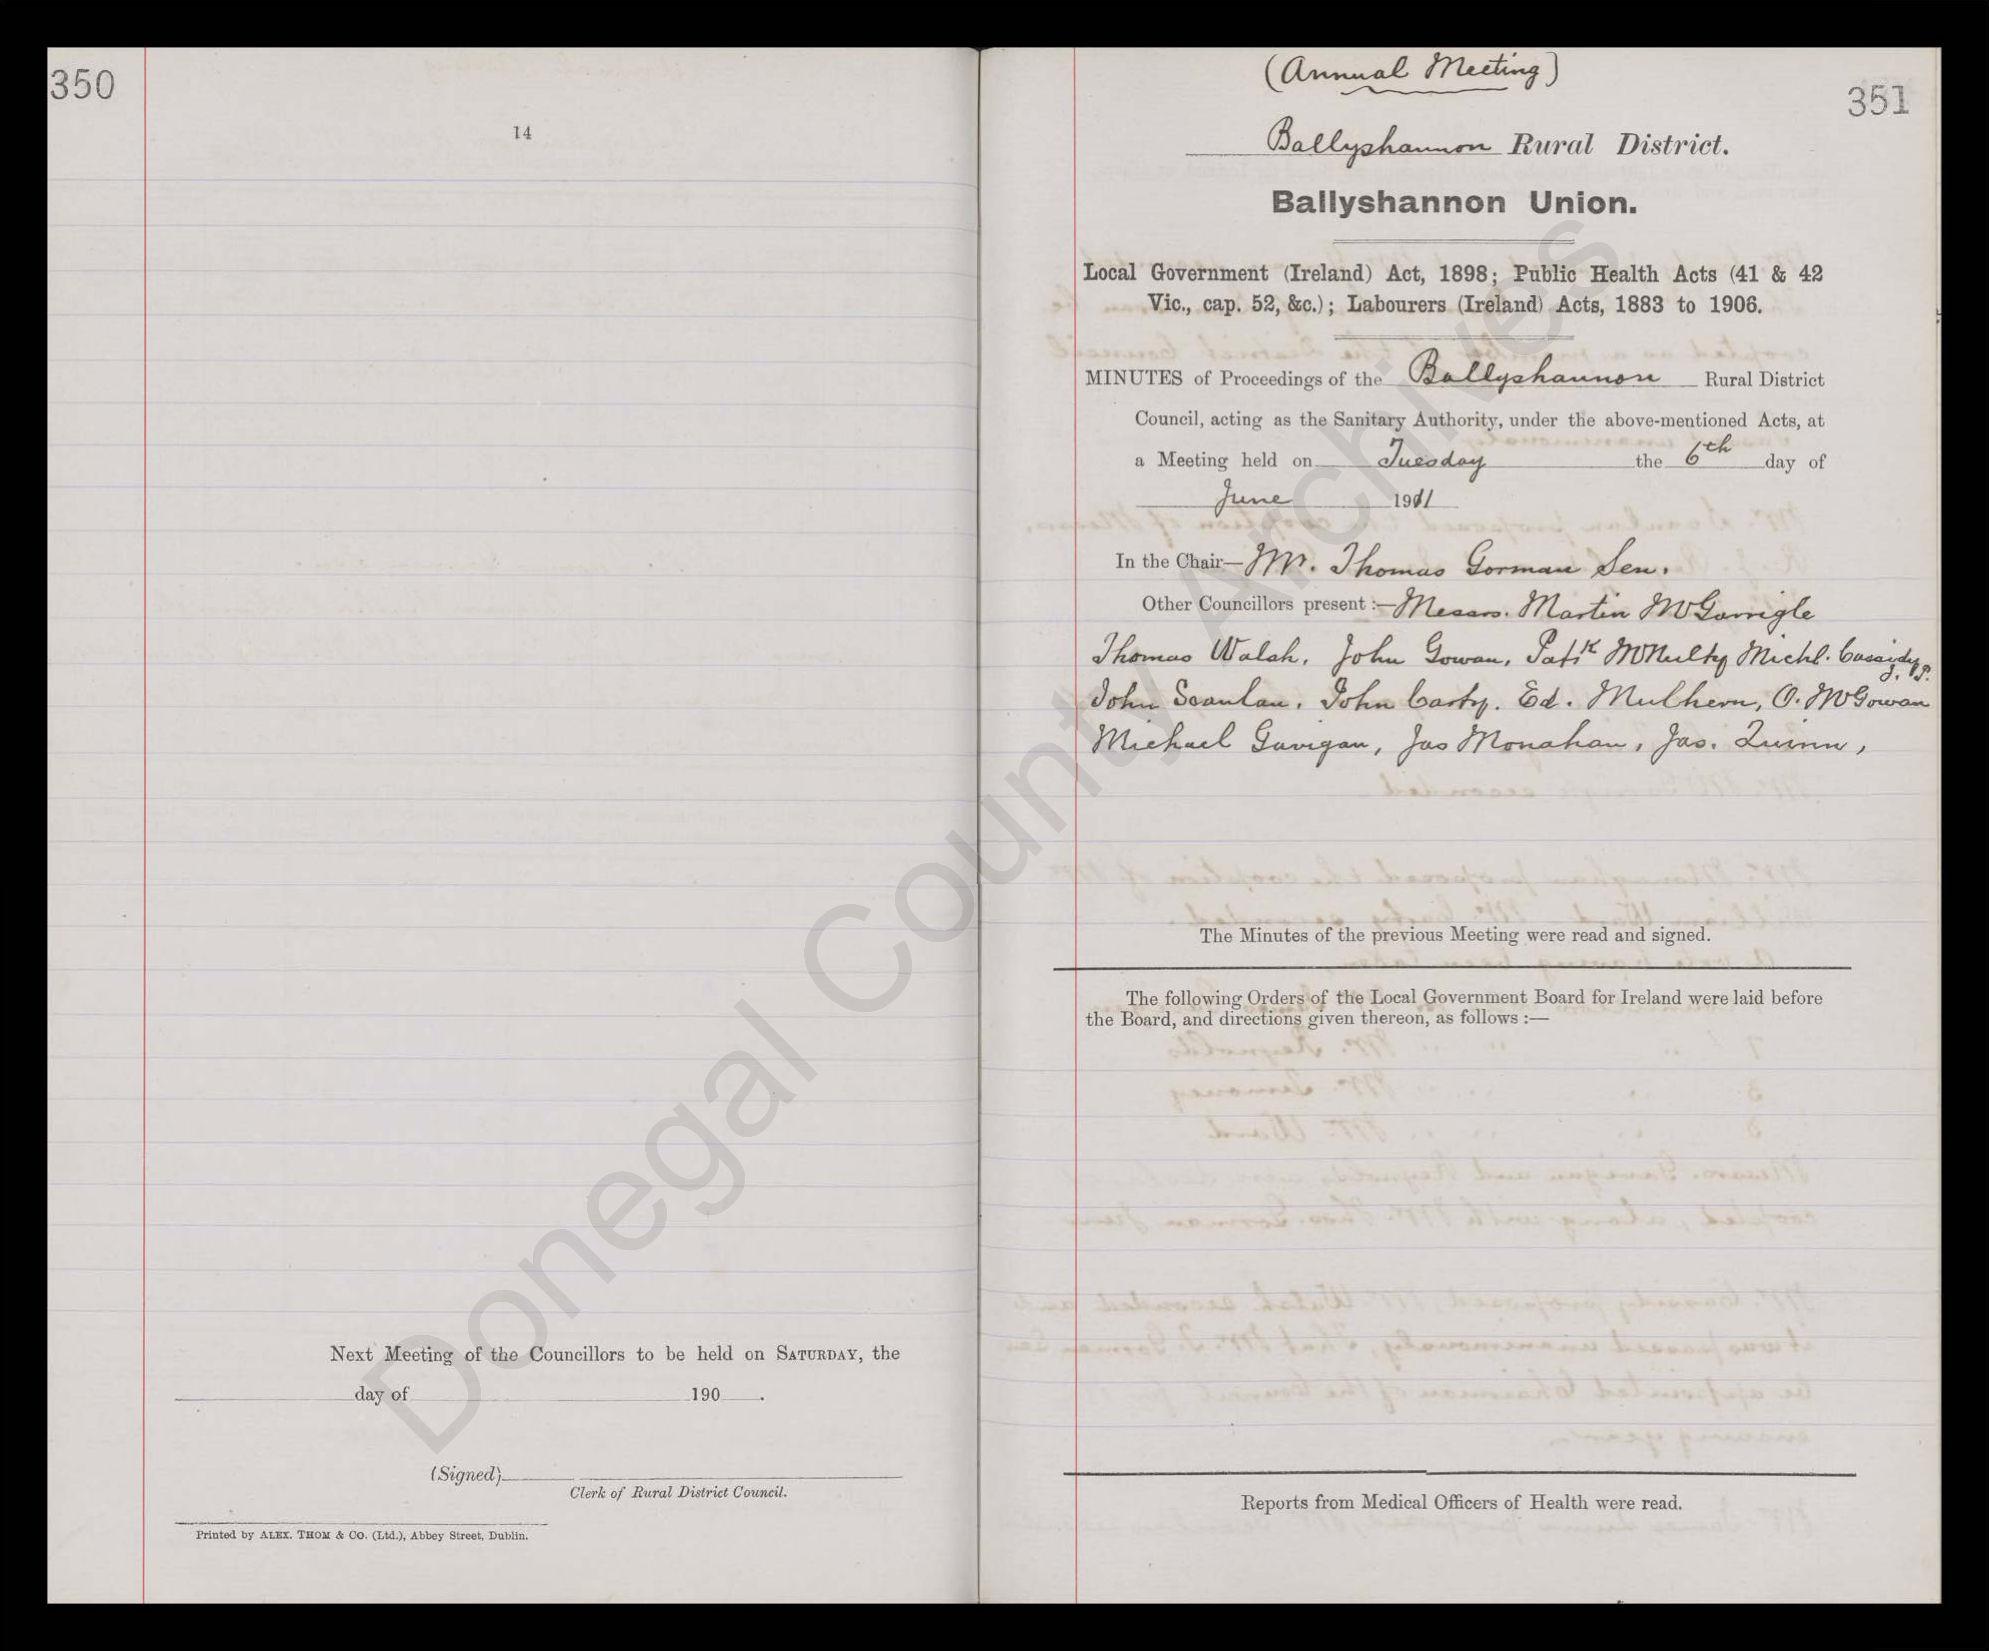 350
14
Next Meeting of the Councillors to be held on SATURDAY, the
day of 190 .
(Signed)
Clerk of Rural District Council.
Printed by ALEX. THOM & CO. (Ltd.), Abbey Street, Dublin.
(Annual Meeting)
351
Ballyshannon Rural District.
Ballyshannon Union.
Local Government (Ireland) Act, 1898; Public Health Acts (41 & 42
Vic., cap. 52, &c.); Labourers (Ireland) Acts, 1883 to 1906.
MINUTES of Proceedings of the Ballyshannon Rural District
Council, acting as the Sanitary Authority, under the above-mentioned Acts, at
a Meeting held on Tuesday the 6th day of
June 1911
In the Chair—Mr. Thomas Gorman Sen.
Other Councillors present :—Messrs. Martin McGarrigle
Thomas Walsh, John Gowan, Patk McNulty Michl. Cassidy J.P.
John Scanlan, John Carty. Ed. Mulhern, O. McGowan
Michael Gavigan, Jas Monahan, Jas. Quinn,
The Minutes of the previous Meeting were read and signed.
The following Orders of the Local Government Board for Ireland were laid before
the Board, and directions given thereon, as follows :—
Reports from Medical Officers of Health were read.
Donegal County Archives